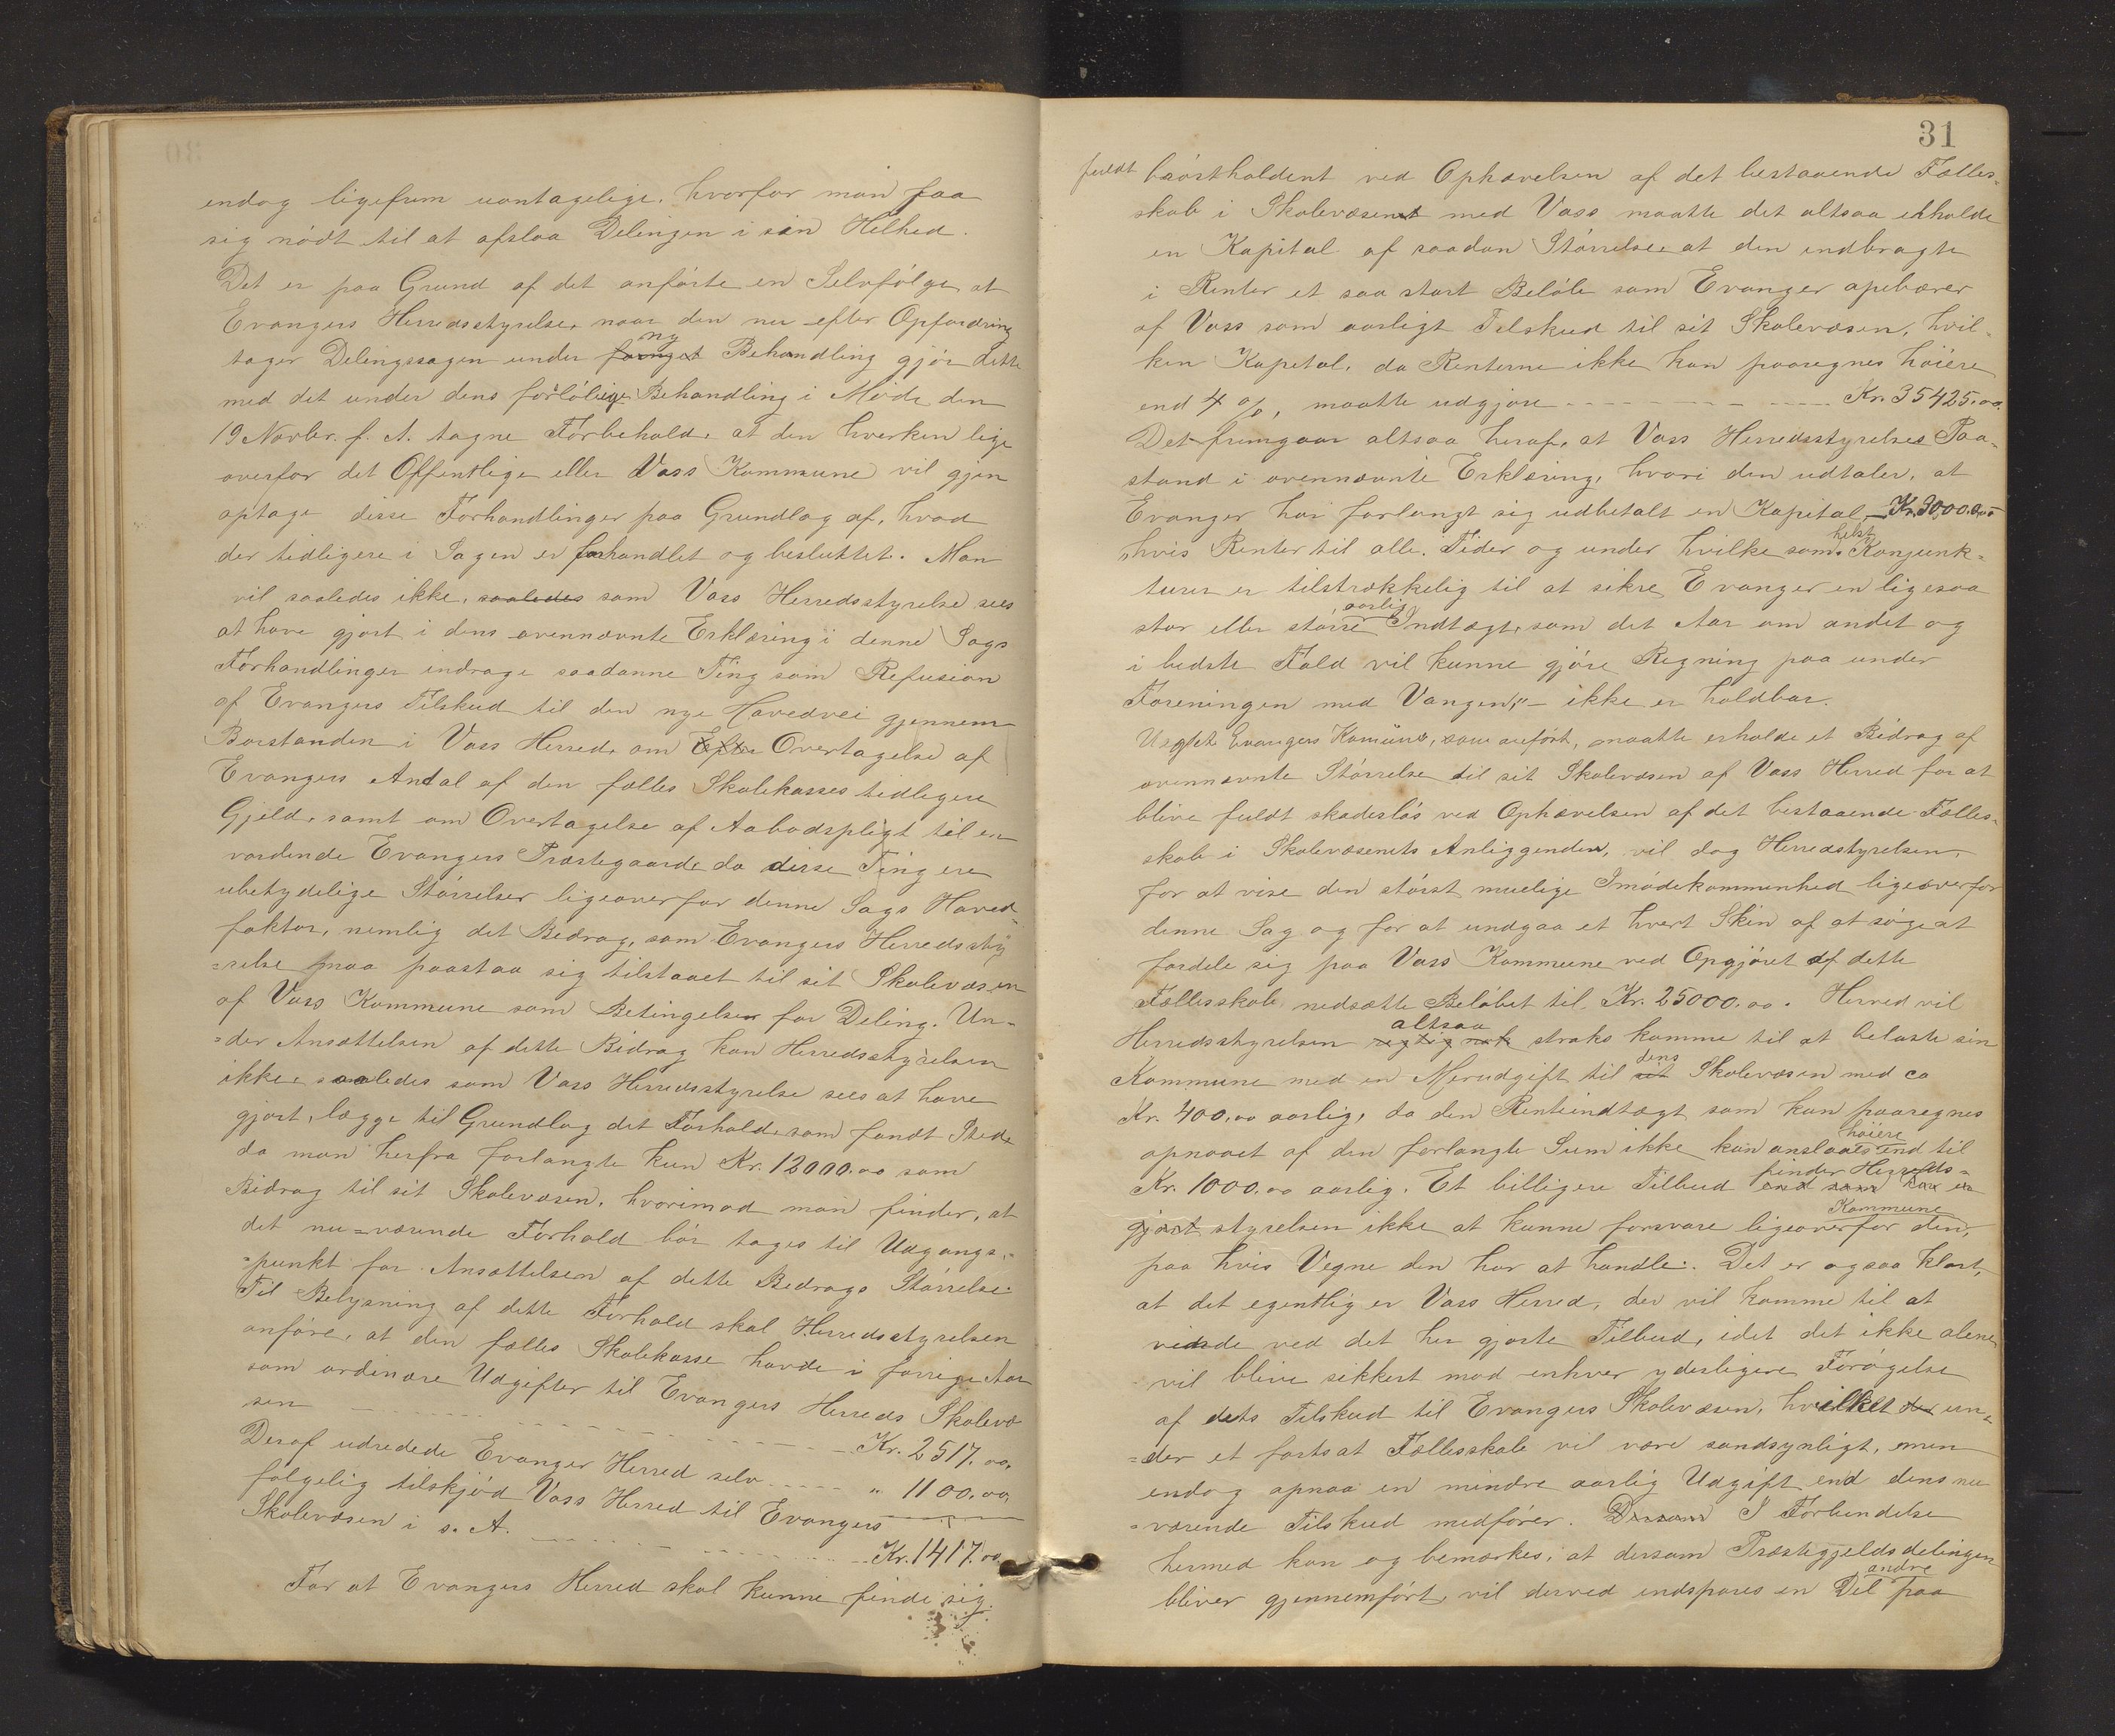 endog ligefrem uantagelige, hvorfor man faa
sig nödt til at afslaa Delingen i sin Helhed.
Det er paa Grund af det anförte en Selvfölge at
Evangers Herredsstyrelse, naar den nu efter Opfordring
tager Delingssagen under ny Behandling gjör dette
med det under dens forlöbige Behandling i Möde den
19 Novbr. f. A. tagne Forbehold, at den hverken lige
overfor det Offentlige eller Voss Kommune vil gjen
optage disse Forhandlinger paa Grundlag af, hvad
der tidligere i Sagen er forhandlet og besluttet. Man
vil saaledes ikke, saaledes som Voss Herredsstyrelse sees
at have gjort i dens ovennævnte Erklæring i denne Sags
Forhandlinger inddrage saadanne Ting som Refusion
af Evangers Tilskud til den nye Hovedvei gjennem
Borstanden i Voss Herred, om Overtagelse af
Evangers Andel af den fælles Skolekasses tidligere
Gjeld, samt om Overtagelse af Aabodspligt til en
vordende Evangers Præstegaard, da disse Ting ere
ubetydelige Störrelser ligeoverfor denne Sags Hoved-
faktor, nemlig det Bedrag, som Evangers Herredssty
=relse maa paastaa sig tilstaaet til sit Skolevæsen
af Voss Kommune som Betingelse for Deling. Un-
=der Ansættelsen af dette Bidrag kan Herredsstyrelsen
ikke, saaledes som Voss Herredsstyrelse sees at have
gjort, lægge til Grundlag det Forhold, som fandt Sted,
da man herfra forlangte kun Kr. 12000.00 som
Bidrag til sit Skolevæsen, hvorimod man finder, at
det nu=værende Forhold bör tages til Udgangs-
=punkt for Ansættelsen af dette Bedrags Störrelse.
Til Belysning af dette Forhold skal Herredsstyrelsen
anföre, at den fælles Skolekasse havde i forrige Aar
som ordinære Udgifter til Evangers Herreds Skolevæ
sen - - - - - - Kr. 2517.00,
Deraf udredede Evanger Herred selv - - - - - „ 1100.00,
fölgelig tilskjöd Voss Herred til Evangers
Skolevæsen i s. A. - - - - - - Kr. 1417.00
For at Evangers Herred skal kunne finde sig
31
fuldt bröstholdent ved Ophævelsen af det bestaaende Fælles-
skab i Skolevæsenet med Voss maatte det altsaa erholde
en Kapital af saadan Störrelse, at den indbragte
i Renter et saa stort Belöb som Evanger opebærer
af Voss som aarligt Tilskud til sit Skolevæsen, hvil-
ken Kapital, da Renterne ikke kan paaregnes höiere
end 4 %, maatte udgjöre - - - - - - Kr. 35425.00.
Det fremgaar altsaa heraf, at Voss Herredsstyrelses Paa-
stand i ovennævnte Erklæring, hvori den udtaler, at
Evanger har forlangt sig udbetalt en Kapital, Kr. 30,000.00
„hvis Renter til alle Tider og under hvilke som helst Konjunk-
turer er tilstrækkelig til at sikre Evanger en ligesaa
stor eller större aarlig Indtægt, som det Aar om andet og
i bedste Fald vil kunne gjöre Regning paa under
Foreningen med Vangen," - ikke er holdbar.
Uagtet Evangers Komüne, som anfört, maatte erholde et Bidrag af
ovennævnte Störrelse til sit Skolevæsen af Voss Herred for at
blive fuldt skadeslös ved Ophævelsen af det bestaaende Fælles-
skab i Skolevæsenets Anliggender, vil dog Herredstyrelsen,
for at vise den störst muelige Imödekommenhed ligeoverfor
denne Sag og for at undgaa et hvert Skin af at söge at
fordele sig paa Voss Kommune ved Opgjöret af dette
Fællesskab, nedsætte Belöbet til Kr. 25000.00. Herved vil
Herredsstyrelsen rigtig nok altsaa straks komme til at belaste sin
Kommune med en Merudgift til sit dens Skolevæsen med ca
Kr. 400.00 aarlig, da den Renteindtægt som kan paaregnes
opnaaet af den forlangte Sum ikke kan anslaaes höiere end til
Kr. 1000.00 aarlig. Et billigere Tilbud end som finder Herreds=
gjort styrelsen ikke at kunne forsvare ligeoverfor den Kommune,
paa hvis Vegne den har at handle. Det er ogsaa klart,
at det egentlig er Voss Herred, der vil komme til at
vinde ved det her gjorte Tilbud, idet det ikke alene
vil blive sikkert mod enhver yderligere Forögelse
af dets Tilskud til Evangers Skolevæsen, hvilket der un-
=der et fortsat Fællesskab vil være sandsynligt, men
endog opnaa en mindre aarlig Udgift end dens nu
=værende Tilskud medförer. Dersom I Forbindelse
hermed kan og bemærkes, at dersom Præstegjeldsdelingen
bliver gjennemfört, vil derved indspares en Del andre paa